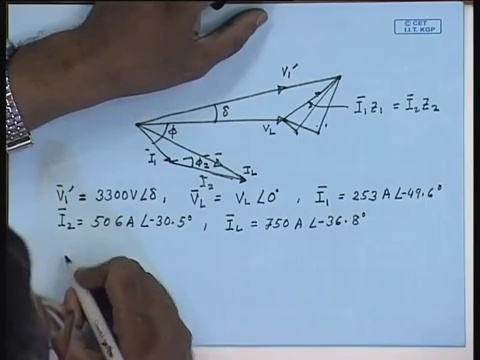 © CET
I.I.T. KGP
V₁′
δ
V_L
Ī₁Z₁ = Ī₂Z₂
φ
Ī₁
φ₂
I_L
Ī₂
V̄₁′ = 3300V∠δ , V̄_L = V_L ∠0° , Ī₁ = 253 A∠-49.6°
Ī₂ = 506 A∠-30.5° , Ī_L = 750 A∠-36.8°